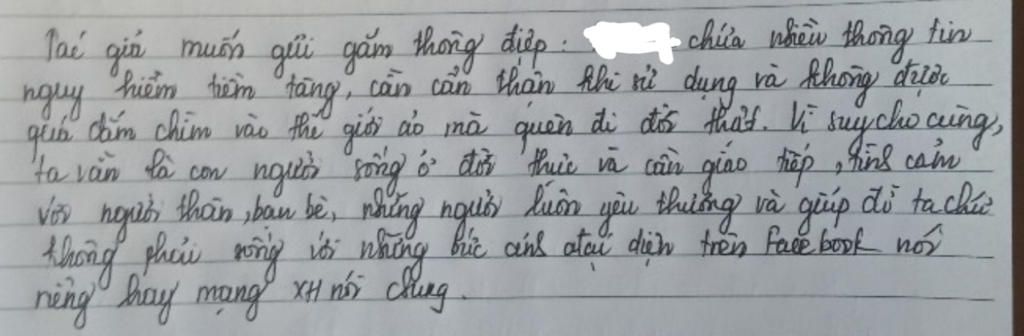 Tác giả muốn gửi gắm thông điệp: chứa nhiều thông tin
nguy hiểm tiềm tàng, cần cẩn thận khi sử dụng và không được
quá đắm chìm vào thế giới ảo mà quên đi đời thật. Vì suy cho cùng,
ta vẫn là con người sống ở đời thực và cần giao tiếp, tình cảm
với người thân, bạn bè, những người luôn yêu thương và giúp đỡ ta chứ
không phải sống với những bức ảnh đại diện trên Facebook nói
riêng hay mạng XH nói chung.